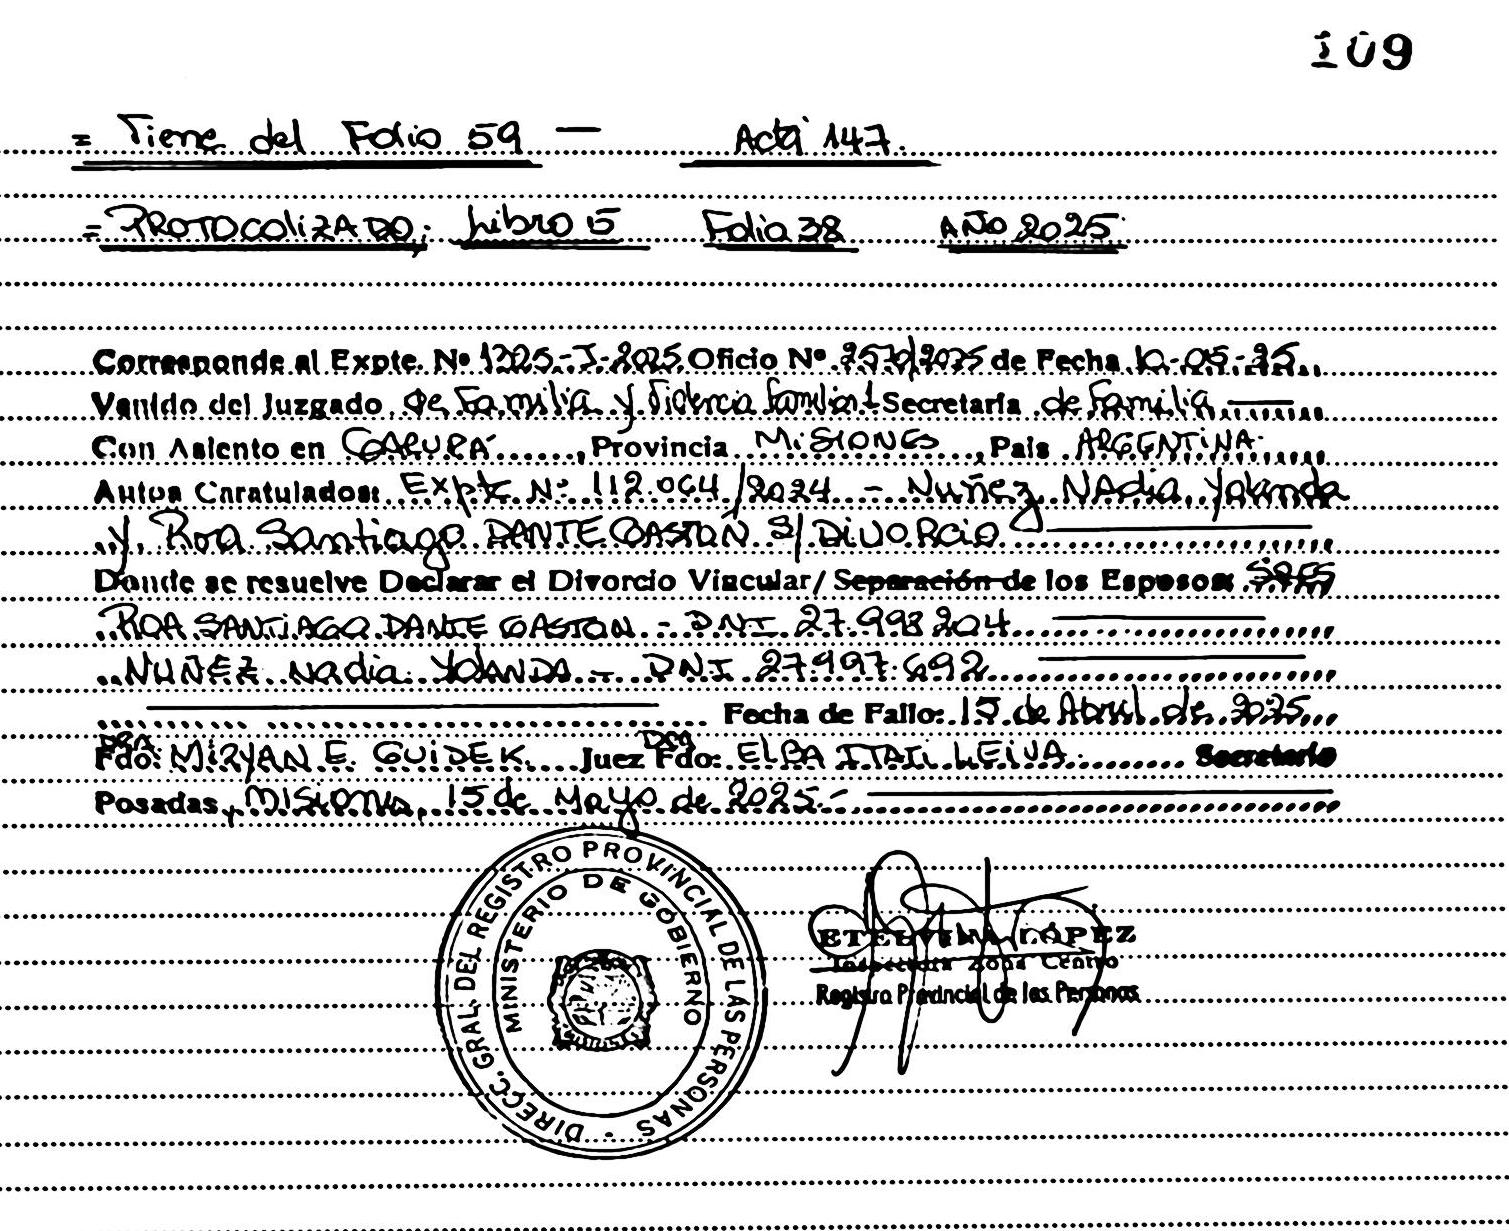 109
= Viene del Folio 59 — Acta 147.
= PROTOCOLIZADO: Libro 5 Folio 38 AÑO 2025.
Corresponde al Expte. Nº 1325-J-2025 Oficio Nº 2570/2025 de Fecha 12-05-25
Venido del Juzgado de Familia y Violencia Familiar 1 Secretaría de Familia
Con Asiento en GARUPÁ, Provincia MISIONES, País ARGENTINA.
Autos Caratulados: Expte Nº 112.064/2024 - Nuñez Nadia Yolanda
y Roa Santiago DANTE GASTON S/ DIVORCIO
Donde se resuelve Declarar el Divorcio Vincular/ Separación de los Esposos: SRES
ROA SANTIAGO DANTE GASTON - DNI 27.998.204
NUÑEZ Nadia YOLANDA - DNI 27.997.692
Fecha de Fallo: 15 de Abril de 2025
DRA Fdo: MIRYAN E. GUIDEK Juez DRA Fdo: ELBA ITATI LEIVA. Secretario
Posadas, Misiones, 15 de Mayo de 2025.-
DIRECC. GRAL. DEL REGISTRO PROVINCIAL DE LAS PERSONAS
MINISTERIO DE GOBIERNO
ETELVINA LÓPEZ
Inspectora Zona Centro
Registro Provincial de las Personas